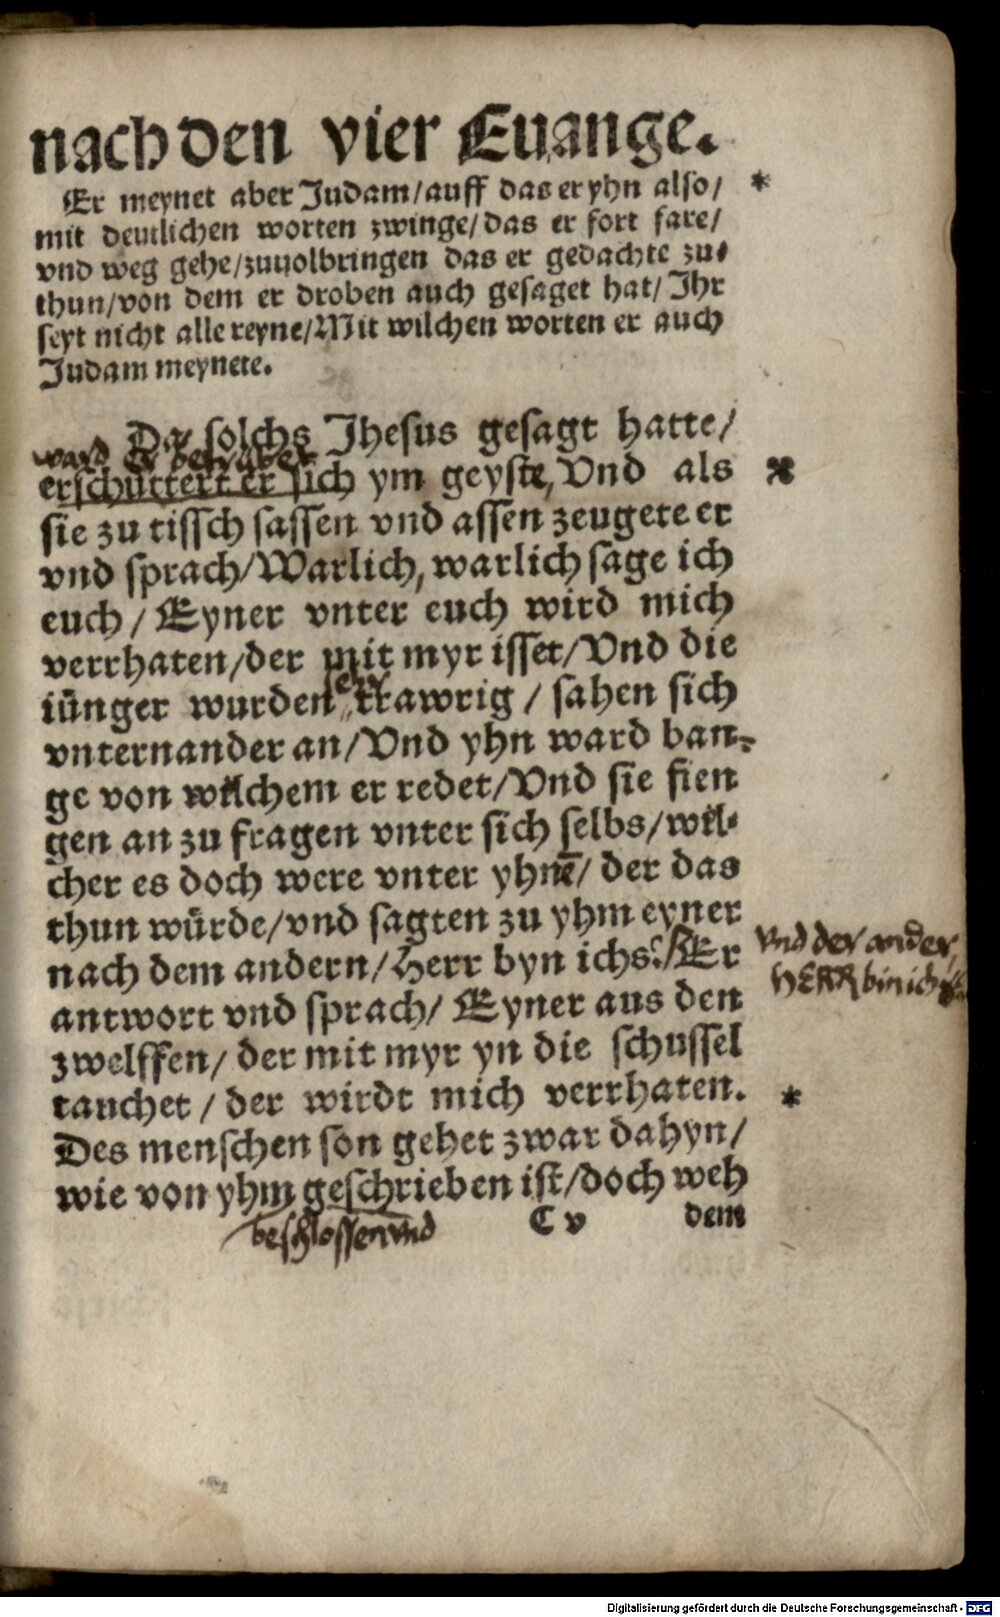 nach den vier Euange.
Er meynet aber Judam/auff das er yhn also/ *
mit deutlichen worten zwinge/das er fort fare/
vnd weg gehe/zuuolbringen das er gedachte zu⸗
thun/von dem er droben auch gesaget hat/ Ihr
seyt nicht alle reyne/Mit wilchen worten er auch
Judam meynete.
Da solchs Jhesus gesagt hatte/
ward Er betrubet
erschuttert er sich ym geyste, Vnd als
sie zu tissch sassen vnd assen zeugete er
vnd sprach/Warlich, warlich sage ich
euch/ Eyner vnter euch wird mich
verrhaten/der mit myr isset/Vnd die
seer
iünger wurden trawrig / sahen sich
vnternander an/Vnd yhn ward ban⸗
ge von wilchem er redet/Vnd sie fien
gen an zu fragen vnter sich selbs/wil⸗
cher es doch were vnter yhnē/ der das
thun würde/vnd sagten zu yhm eyner
Vnd der ander,
nach dem andern/Herr byn ichs?/Er
HERR bin ichs
antwort vnd sprach/ Eyner aus den
zwelffen/ der mit myr yn die schussel
tauchet / der wirdt mich verrhaten. *
Des menschen son gehet zwar dahyn/
wie von yhm geschrieben ist/doch weh
beschlossen vnd
C v dem
Digitalisierung gefördert durch die Deutsche Forschungsgemeinschaft - DFG